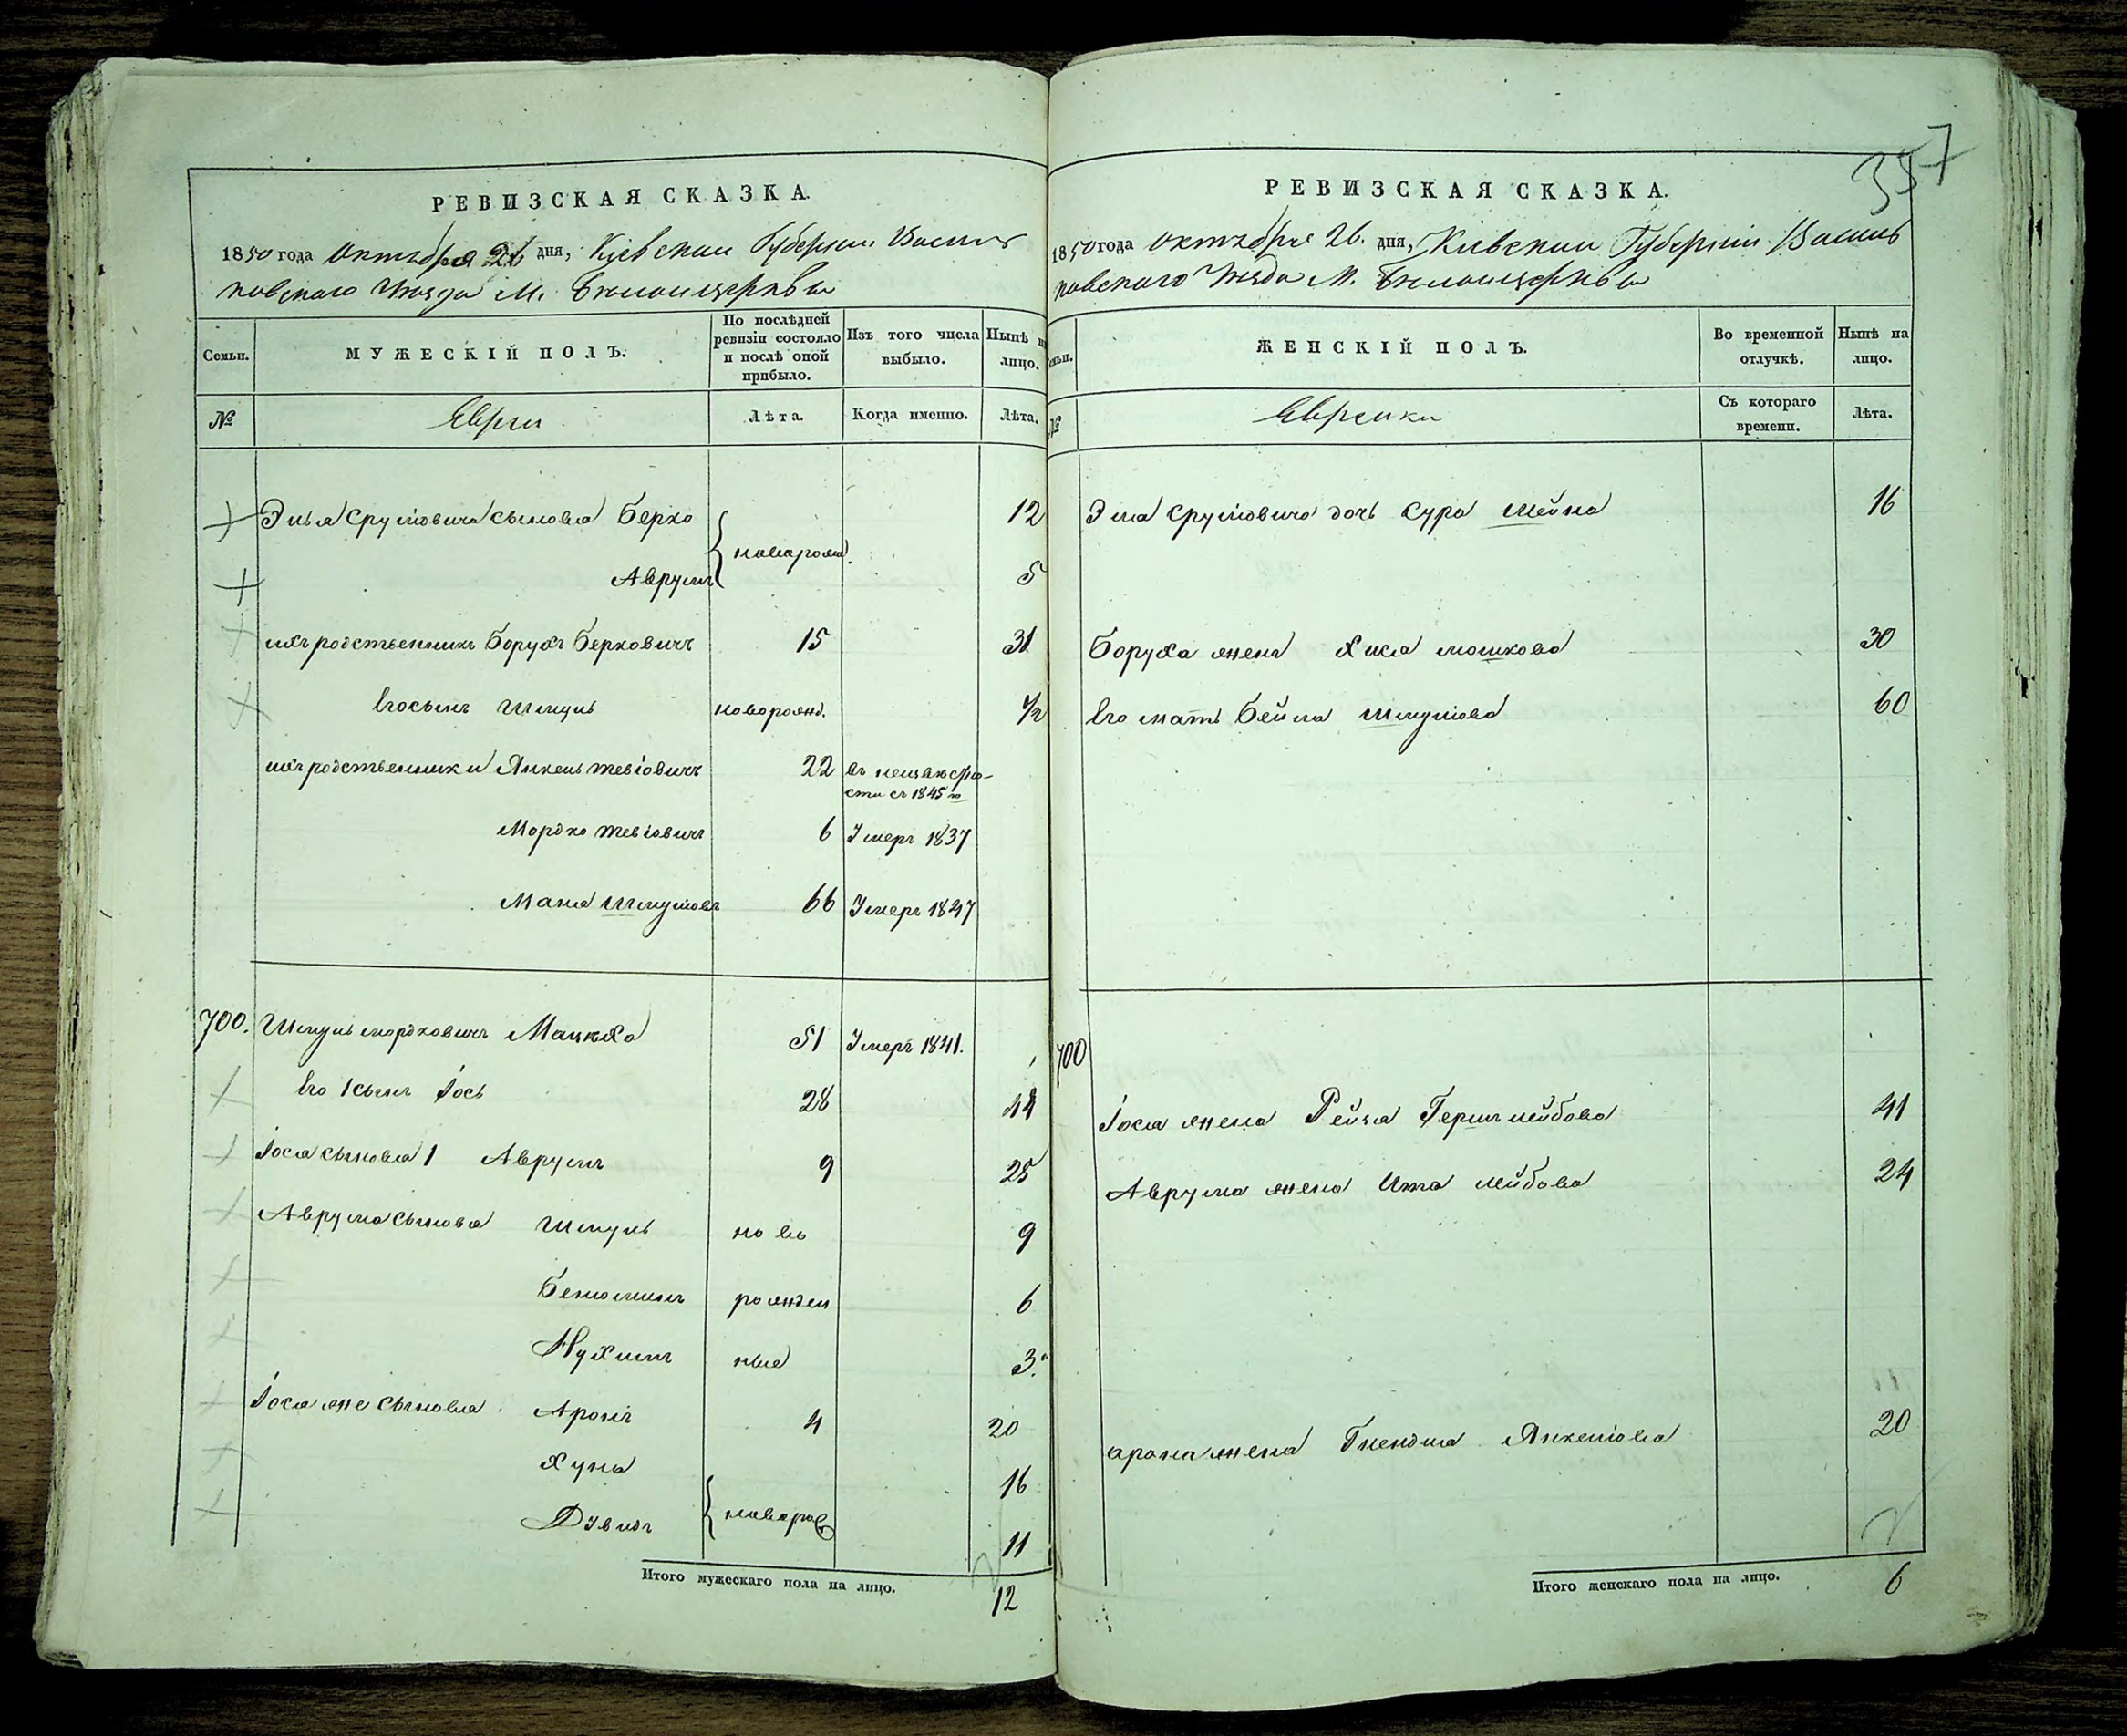 357
РЕВИЗСКАЯ СКАЗКА.
1850 года Октября 26 дня, Кіевской Губерніи Василь
ковскаго Уѣзда М. Бѣлоцерквы
Семьи.
МУЖЕСКІЙ ПОЛЪ.
По послѣдней ревизіи состояло и послѣ оной прибыло.
Изъ того числа выбыло.
Нынѣ на лицо.
№
Евреи
Лѣта.
Когда именно.
Лѣта.
Эльи Сруліовича сыновья Берко 12
новорожд.
Аврумъ 5
ихъ родственникъ Борухъ Берковичъ 15 31
Его сынъ Шмуль новорожд. 1/2
ихъ родственники Янкель Тевіовичъ 22 въ неизвѣстно-
сти съ 1845 го
Мордко Тевіовичъ 6 Умеръ 1837
Мана Шмуліовъ 66 Умеръ 1847
700. Шмуль Мордковичъ Мацѣха 51 Умеръ 1841.
Его 1 сынъ Іось 28 44
Іося сыновья 1 Аврумъ 9 25
Аврума сыновья Шмуль ново 9
Беніоминъ рожден 6
Нухимъ ные 3
Іося же сыновья Аронъ 4 20
Хуна 16
новорож
Дувидъ 11
Итого мужескаго пола на лицо. 12
РЕВИЗСКАЯ СКАЗКА.
1850 года Октября 26. дня, Кіевской Губерніи Василь
ковскаго Уѣзда М. Бѣлоцерквы
Семьи.
ЖЕНСКІЙ ПОЛЪ.
Во временной отлучкѣ.
Нынѣ на лицо.
№
Еврейки
Съ котораго времени.
Лѣта.
Эля Сруліовича дочь Сура Шейна 16
Боруха жена Хися Мошкова 30
Его мать Бейла Шмуліова 60
700
Іося жена Рейзя Гершлейбова 41
Аврума жена Ита Лейбова 24
Арона жена Гнендля Янкеліова 20
Итого женскаго пола на лицо. 6